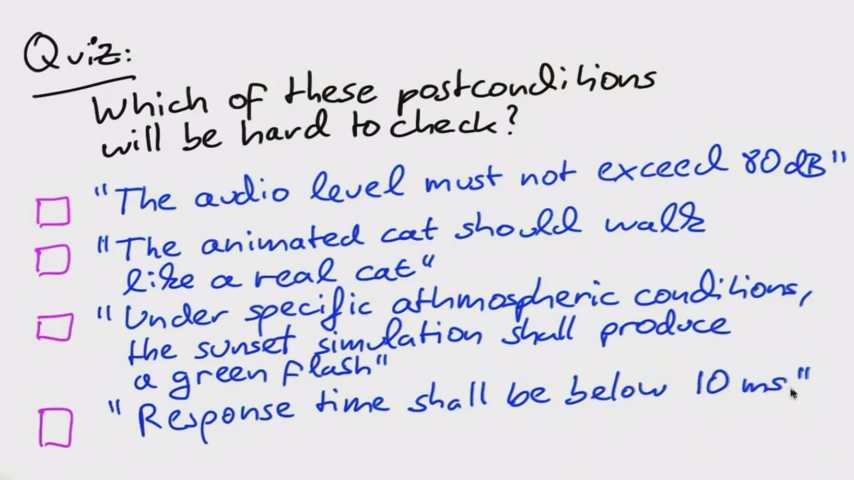 Quiz:
Which of these postconditions
will be hard to check?
"The audio level must not exceed 80 dB"
"The animated cat should walk
like a real cat"
"Under specific athmospheric conditions,
the sunset simulation shall produce
a green flash"
"Response time shall be below 10 ms."